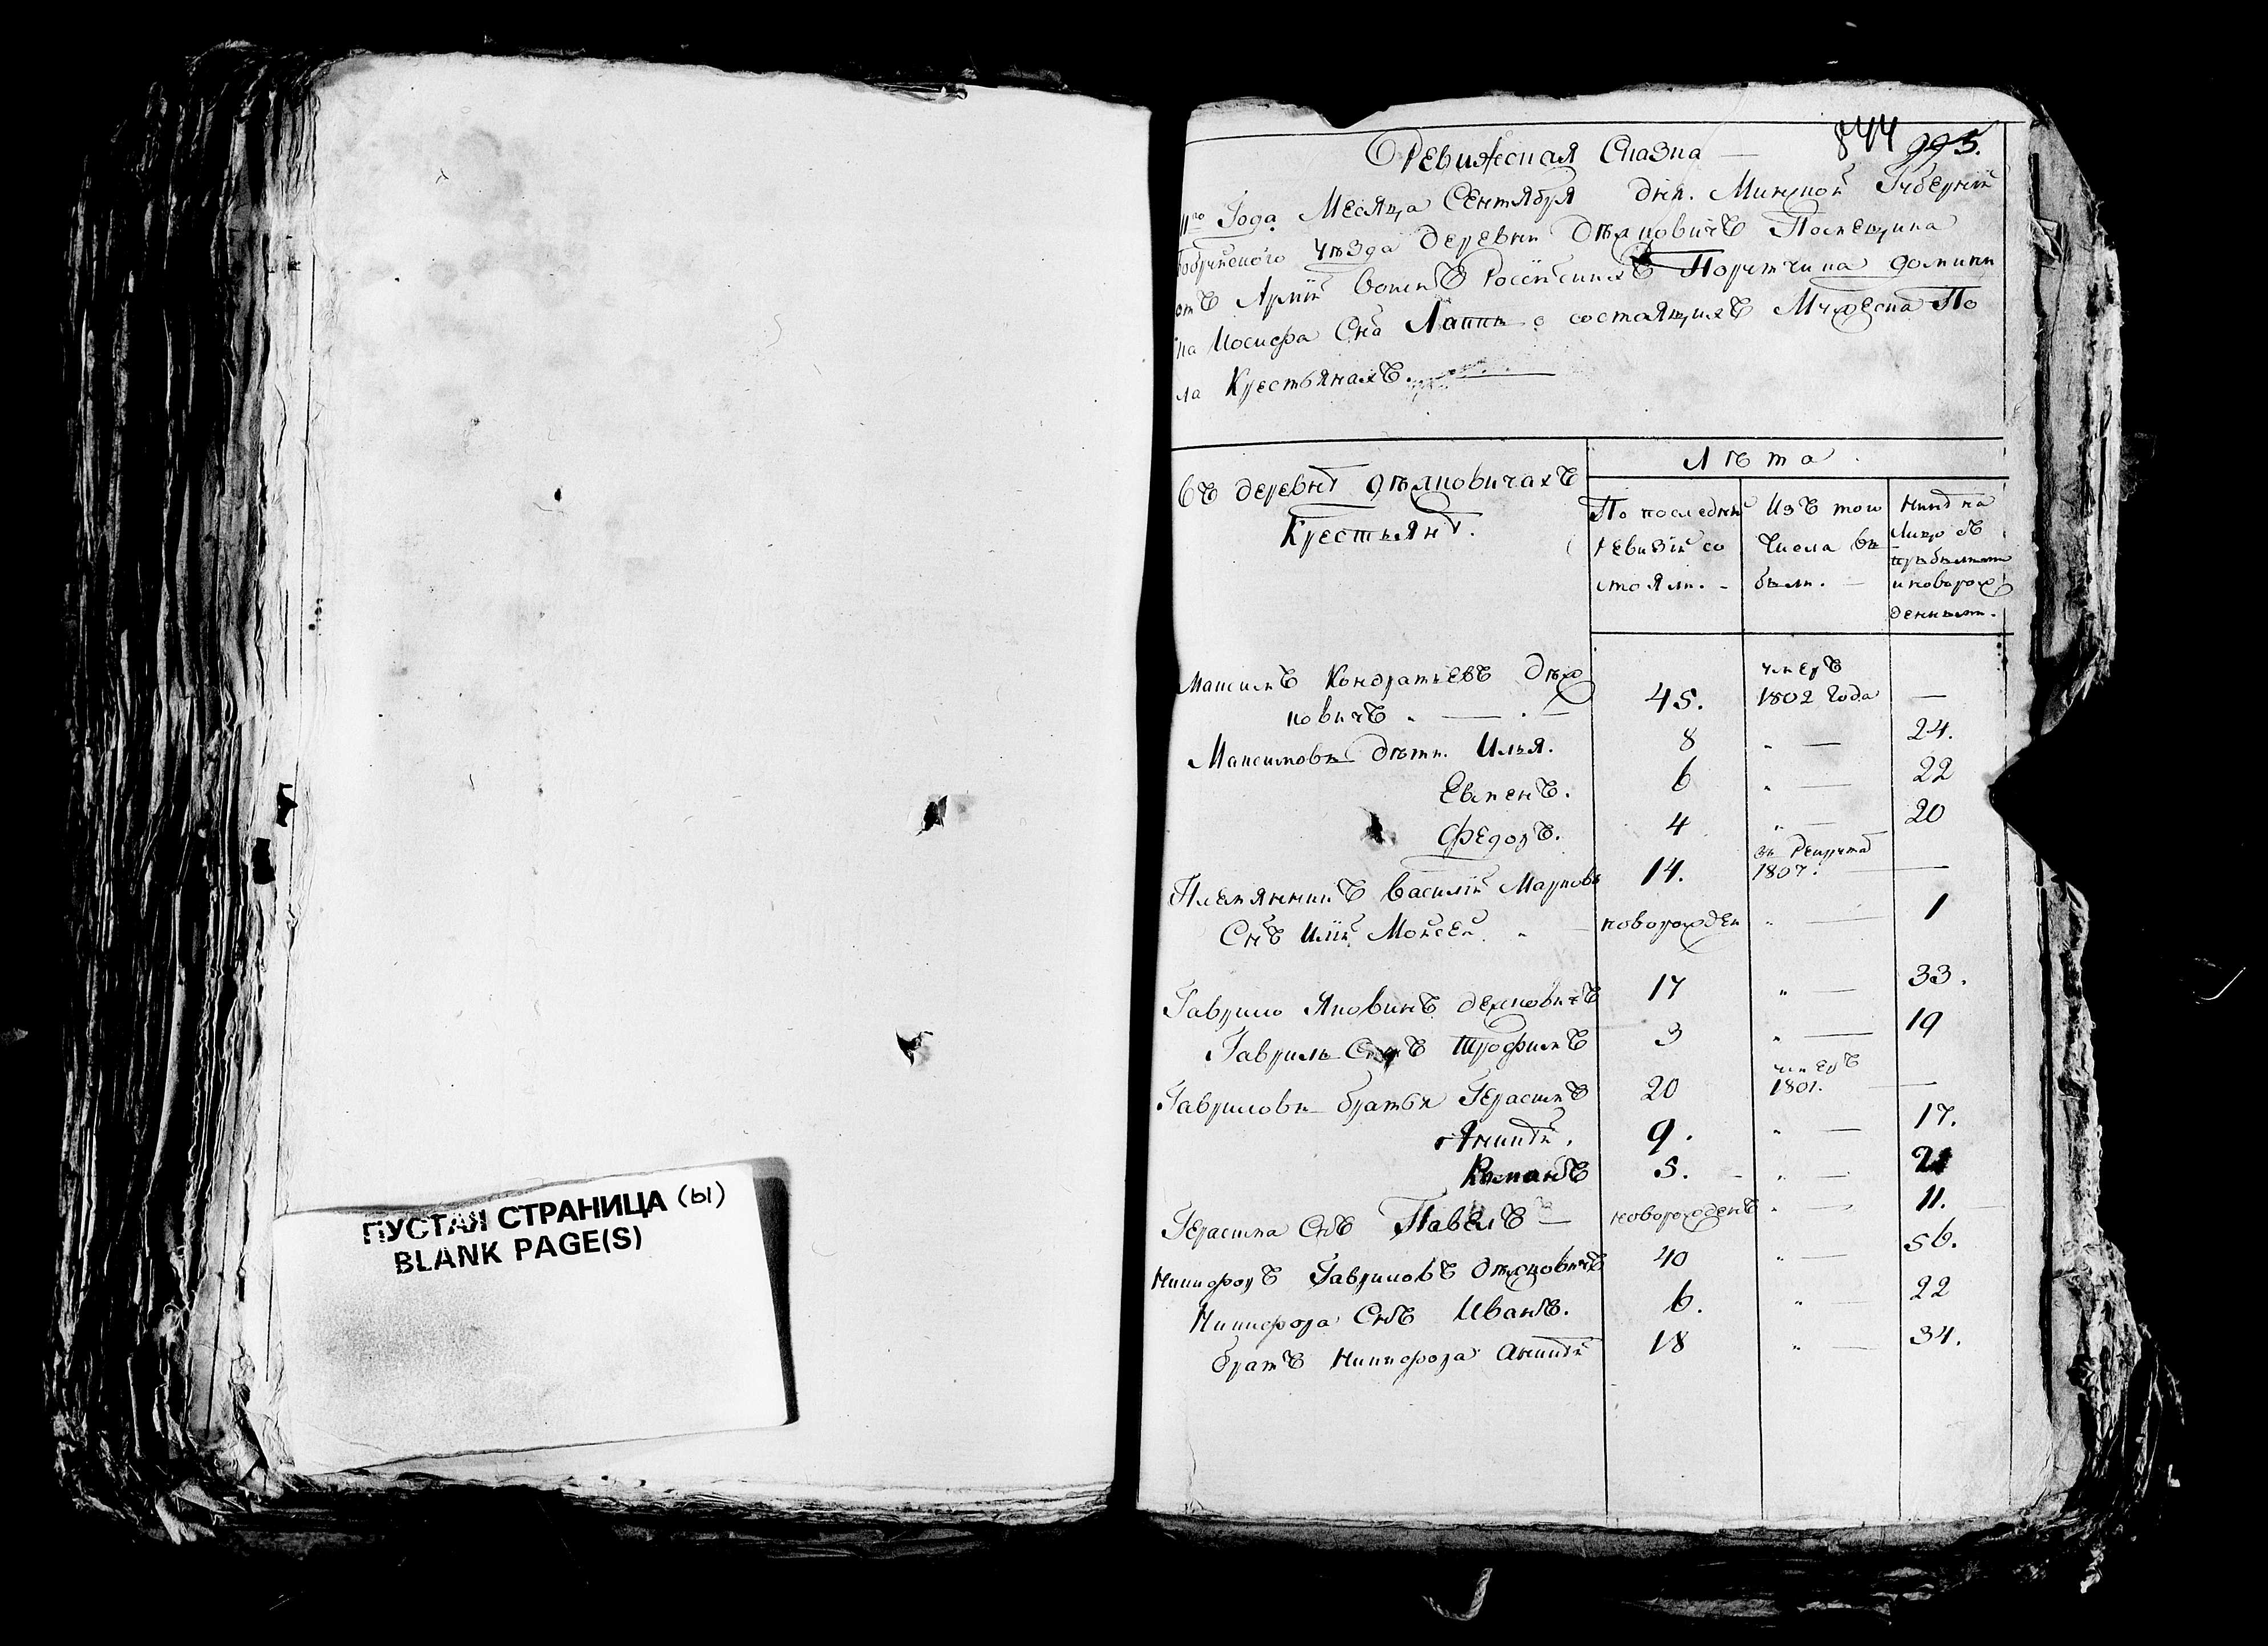 ПУСТАЯ СТРАНИЦА (ы)
BLANK PAGE(S)
844 995.
Ревижская Сказка
11го Года Месяца Сентября дня. Минской Губернии
Бобруйского уѣзда деревни Дѣхновичъ Помещика
отъ Армiи воискъ Россiйскихъ Порутчика Домини
ка Иосифа Сна Лаппы о состоящихъ Мужеска По
ла Крестьянахъ.
Въ деревнѣ Дѣхновичахъ
Крестьянѣ.
Лѣта
По последней
ревизiи со
стояли.
Изъ того
Числа вы
были.
Нынѣ на
лицо съ
прибылыми
и новорож
денными.
Максимъ Кондратьевъ Дѣх
новичъ 45. умеръ 1802 Года —
Максимовы дѣти Илья. 8 " — 24.
Евменъ. 6 " — 22
Федоръ. 4 " — 20
Племянникъ Василiй Марковъ 14. въ рекруты 1807. —
Снъ Илiи Мойсей новорожден " — 1
Гаврило Яковинъ Дехновичъ 17 " — 33.
Гаврилы Снъ Трофимъ 3 " — 19
Гавриловы братья Герасимъ 20 умеръ 1801. —
Аникѣй. 9. " — 17.
Романъ 5. " — 21
Герасима Снъ Павелъ — новорожденъ " — 11.
Никифоръ Гавриловъ Дѣхновичъ 40 " — 56.
Никифора Снъ Иванъ. 6. " — 22
братъ Никифора Аникѣй 18 " — 34.